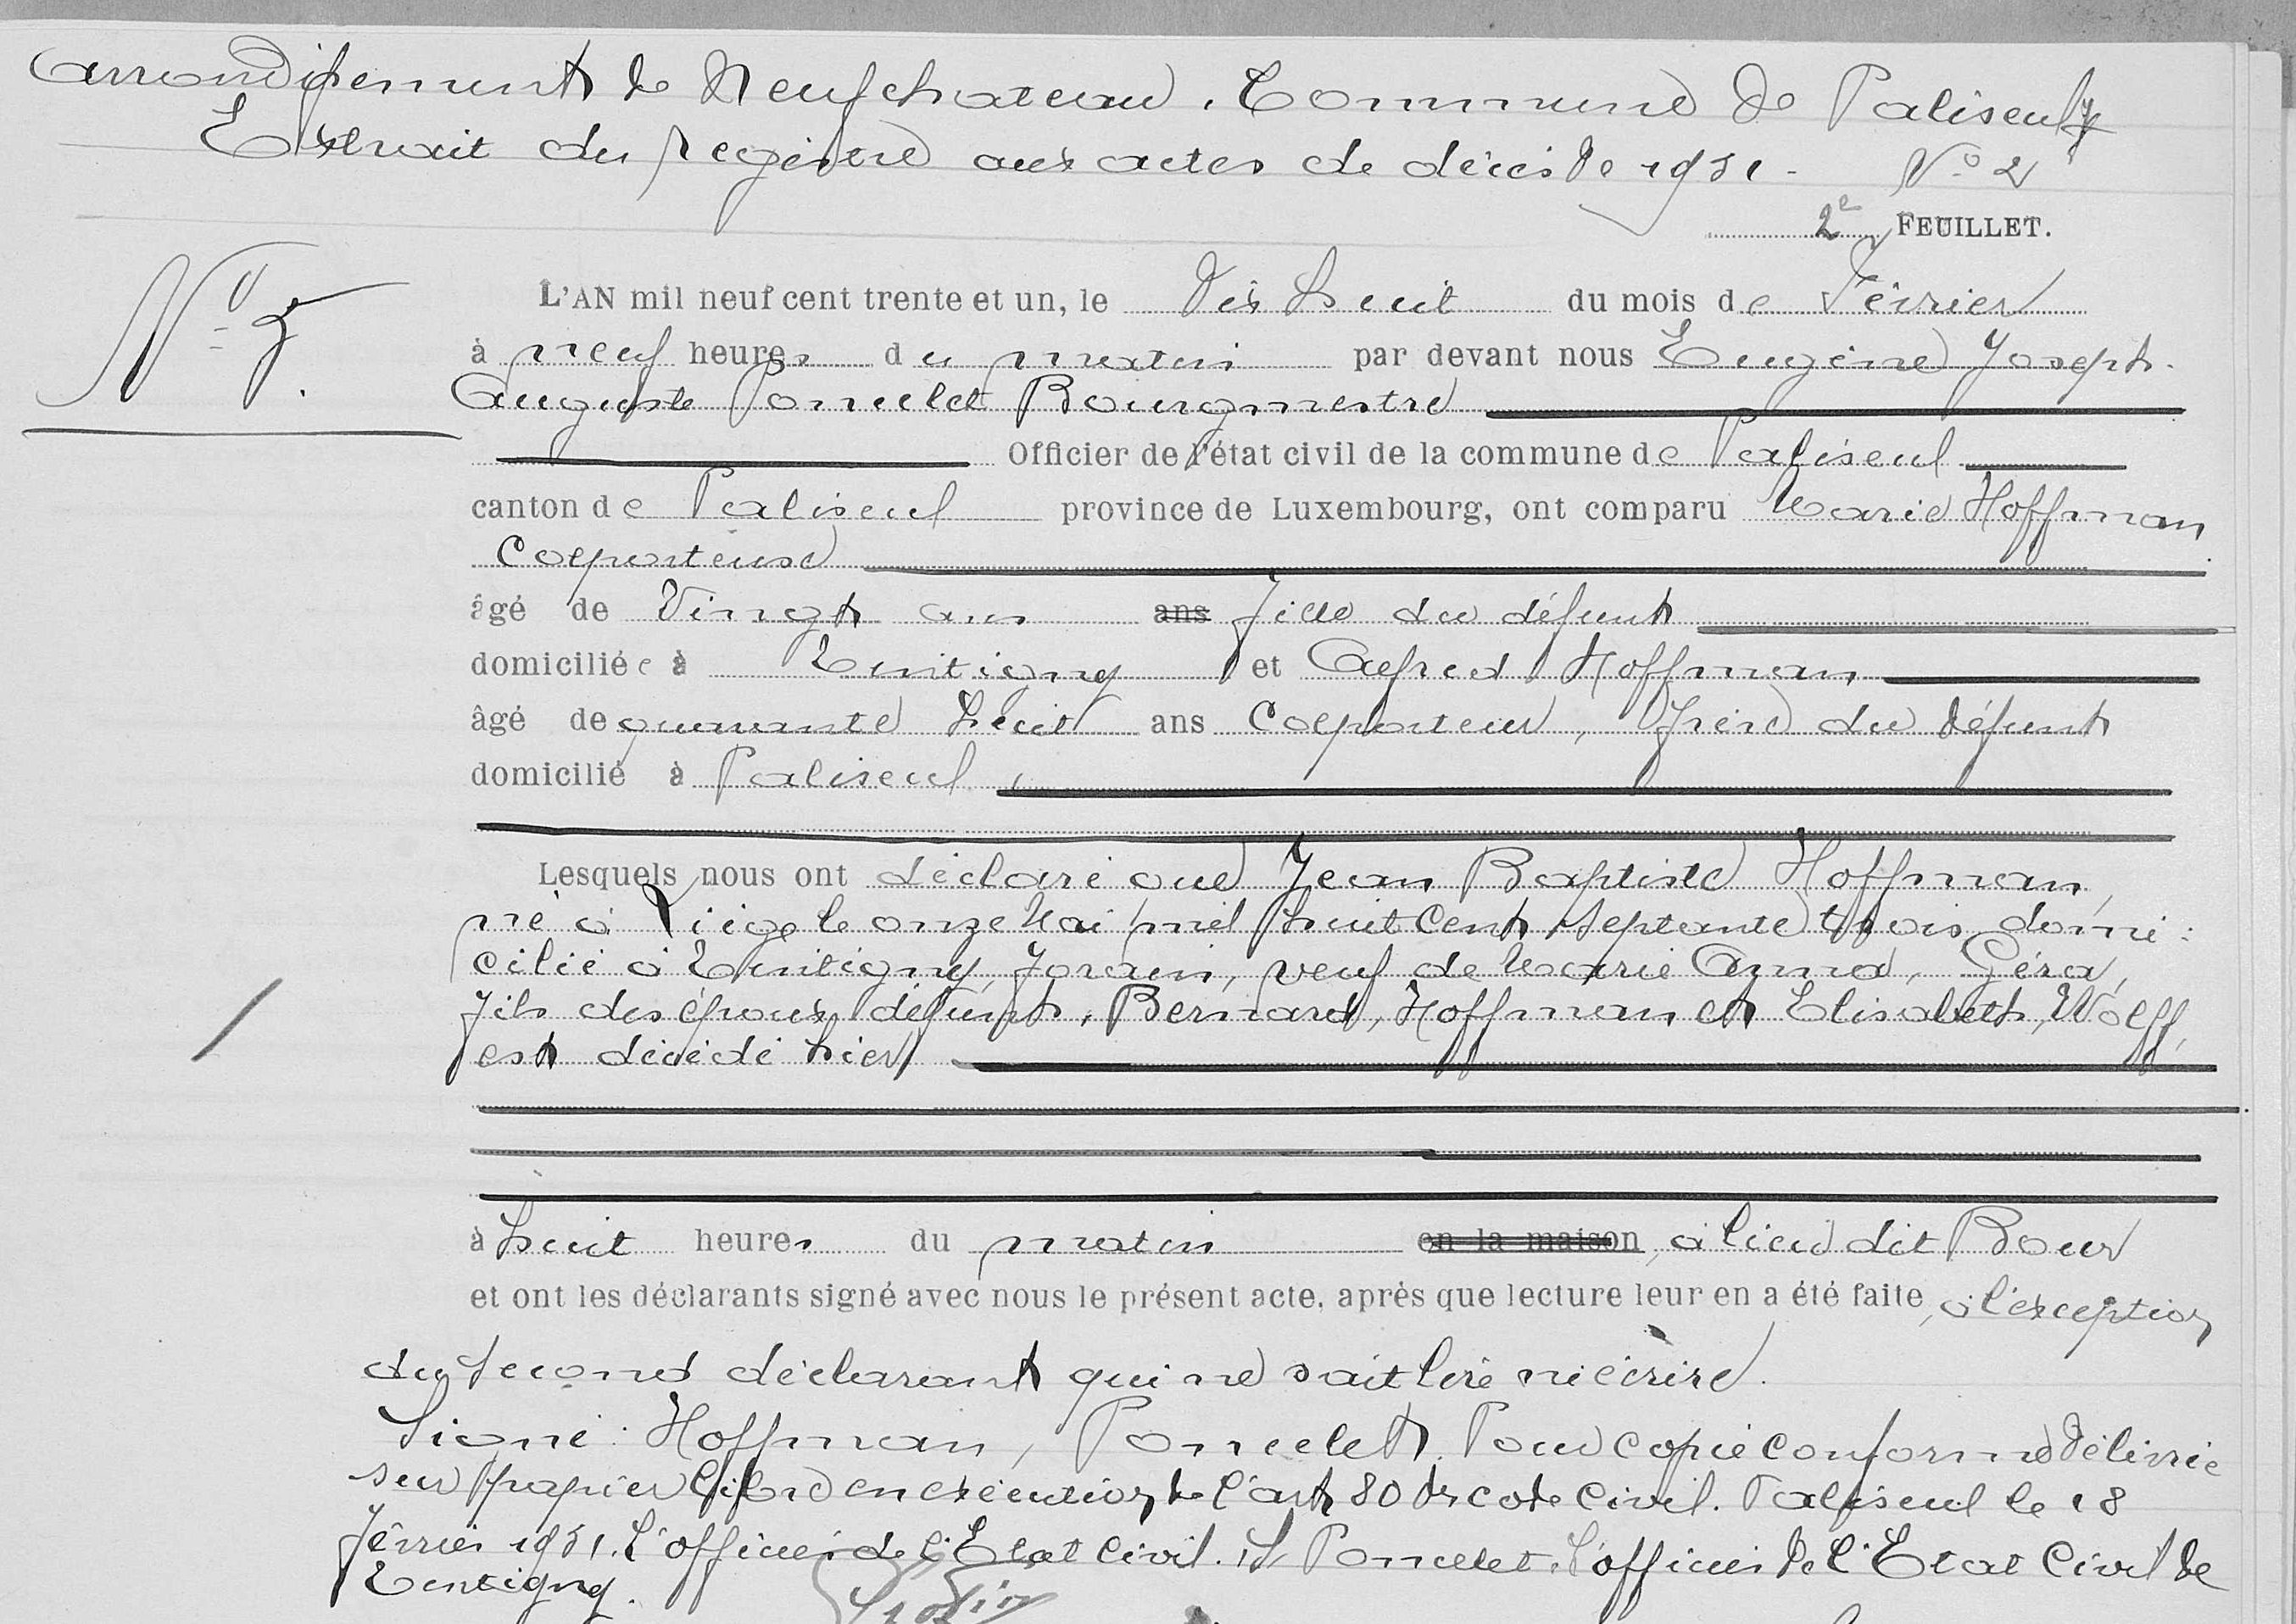 Arrondissement de Neufchateau. Commune de Paliseul
Extrait du registre aux actes de décès de 1931 - N° 2
2e FEUILLET.
N° 5.
L'AN mil neuf cent trente et un, le Dix huit du mois de Février
à neuf heures du matin par devant nous Eugène Joseph
Auguste Poncelet Bourgmestre
Officier de l'état civil de la commune de Paliseul
canton de Paliseul province de Luxembourg, ont comparu Marie Hoffman
Colporteuse
âgé de Vingt ans ans fille du défunt
domiciliée à Tintigny et Alfred Hoffman
âgé de quarante huit ans Colporteur, frère du défunt
domicilié à Paliseul,
Lesquels nous ont déclaré que Jean Baptiste Hoffman,
né à Liège le onze Mai mil huit Cent septante trois domi:
cilié à Tintigny, forain, veuf de Marie Anna, Géra,
fils des époux défunts, Bernard, Hoffman et Elisabeth, Wolff,
est décédé hier
à huit heures du matin en la maison, à lieu dit Bour
et ont les déclarants signé avec nous le présent acte, après que lecture leur en a été faite, à l'exception
du second déclarant qui ne sait lire ni écrire.
Signé: Hoffman, Poncelet. Pour copie conforme délivrée
sur papier libre en exécution de l'art 80 du code Civil. Paliseul le 18
février 1931. L'officier de l'Etat Civil. Poncelet. L'officier de l'Etat Civil de
Tintigny.